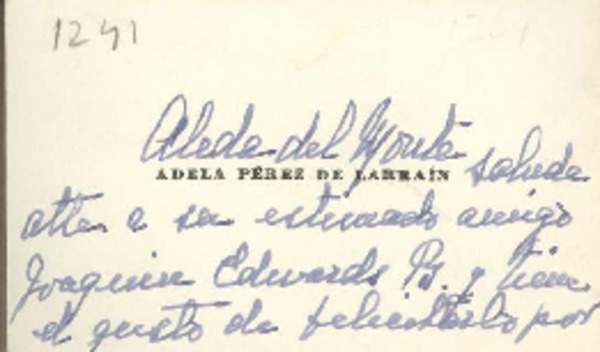 1241
Aleda del Monte
ADELA PÉREZ DE LARRAÍN
saluda
atte. a su estimado amigo
Joaquin Edwards B. y tiene
el gusto de felicitarlo por